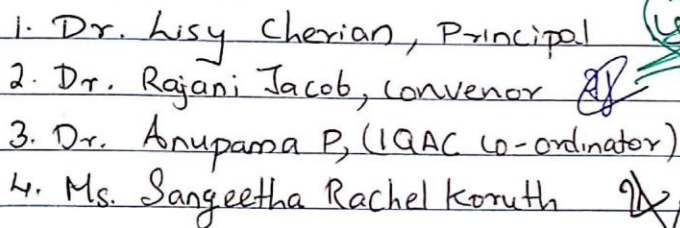 1. Dr. Lisy Cherian, Principal
2. Dr. Rajani Jacob, Convenor
3. Dr. Anupama P, (IQAC Co-ordinator)
4. Ms. Sangeetha Rachel Koruth